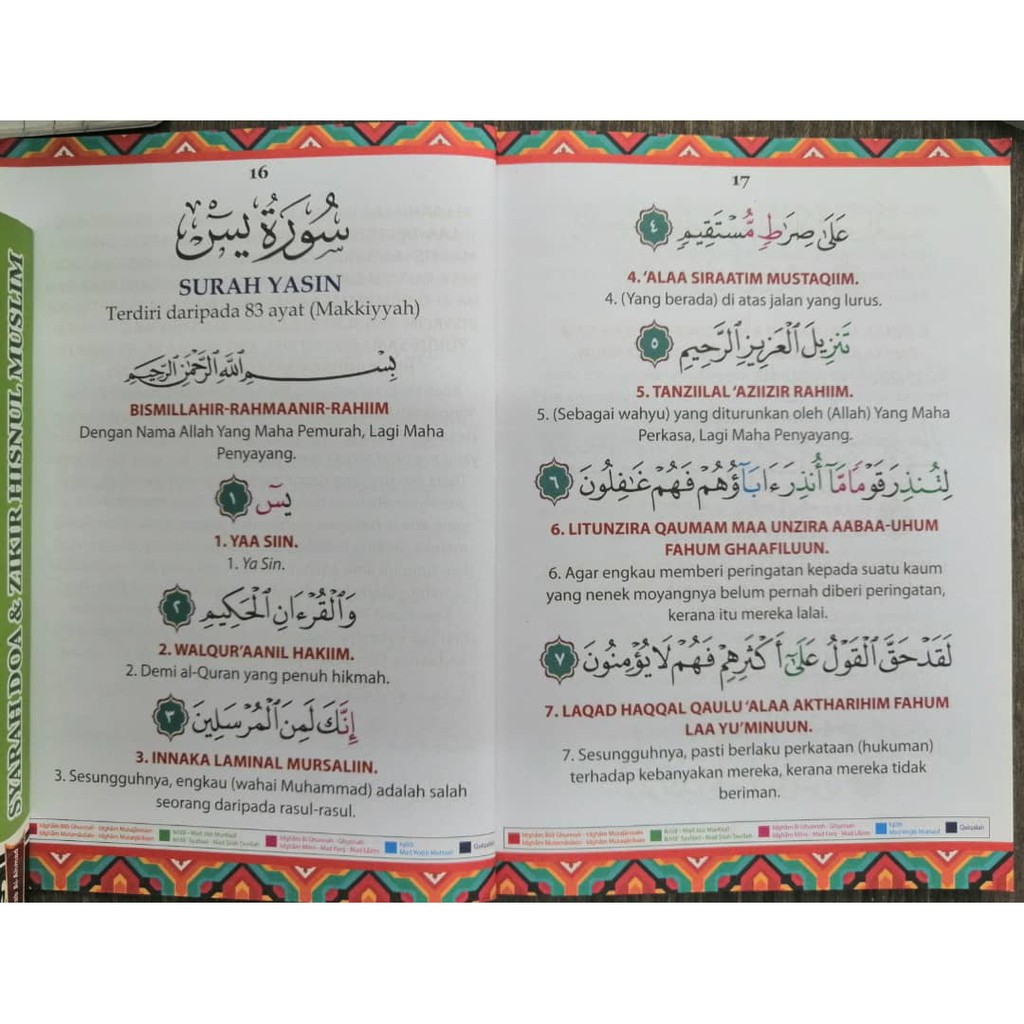 SYARAH DOA & ZIKIR HISNUL MUSLIM
16
سُورَةُ يسٓ
SURAH YASIN
Terdiri daripada 83 ayat (Makkiyyah)
بِسْمِ ٱللَّهِ ٱلرَّحْمَٰنِ ٱلرَّحِيمِ
BISMILLAHIR-RAHMAANIR-RAHIIM
Dengan Nama Allah Yang Maha Pemurah, Lagi Maha
Penyayang.
يسٓ ١
1. YAA SIIN.
1. Ya Sin.
وَٱلْقُرْءَانِ ٱلْحَكِيمِ ٢
2. WALQUR'AANIL HAKIIM.
2. Demi al-Quran yang penuh hikmah.
إِنَّكَ لَمِنَ ٱلْمُرْسَلِينَ ٣
3. INNAKA LAMINAL MURSALIIN.
3. Sesungguhnya, engkau (wahai Muhammad) adalah salah
seorang daripada rasul-rasul.
17
عَلَىٰ صِرَٰطٍ مُّسْتَقِيمٍ ٤
4. 'ALAA SIRAATIM MUSTAQIIM.
4. (Yang berada) di atas jalan yang lurus.
تَنزِيلَ ٱلْعَزِيزِ ٱلرَّحِيمِ ٥
5. TANZIILAL 'AZIIZIR RAHIIM.
5. (Sebagai wahyu) yang diturunkan oleh (Allah) Yang Maha
Perkasa, Lagi Maha Penyayang.
لِتُنذِرَ قَوْمًا مَّآ أُنذِرَ ءَابَآؤُهُمْ فَهُمْ غَٰفِلُونَ ٦
6. LITUNZIRA QAUMAM MAA UNZIRA AABAA-UHUM
FAHUM GHAAFILUUN.
6. Agar engkau memberi peringatan kepada suatu kaum
yang nenek moyangnya belum pernah diberi peringatan,
kerana itu mereka lalai.
لَقَدْ حَقَّ ٱلْقَوْلُ عَلَىٰٓ أَكْثَرِهِمْ فَهُمْ لَا يُؤْمِنُونَ ٧
7. LAQAD HAQQAL QAULU 'ALAA AKTHARIHIM FAHUM
LAA YU'MINUUN.
7. Sesungguhnya, pasti berlaku perkataan (hukuman)
terhadap kebanyakan mereka, kerana mereka tidak
beriman.